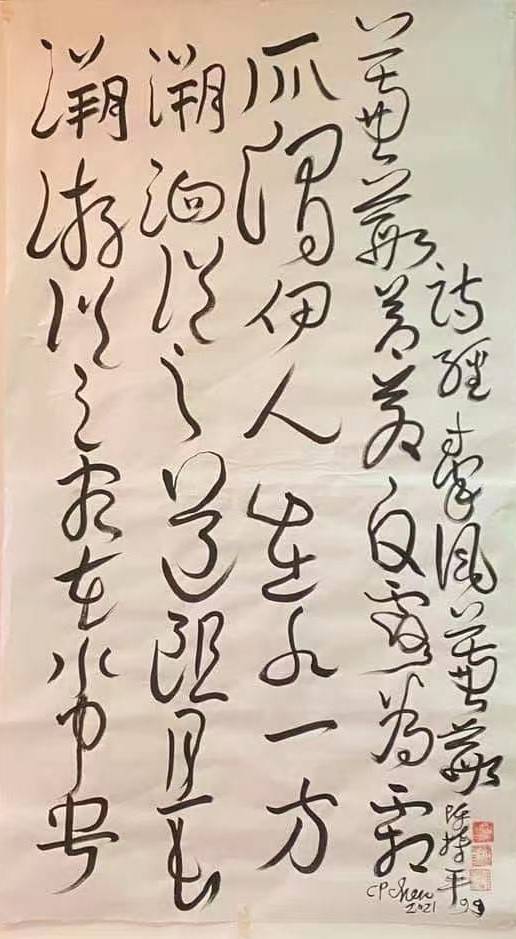 詩經秦風蒹葭
蒹葭蒼蒼白露為霜
所謂伊人在水一方
溯洄從之道阻且長
溯游從之宛在水中央
陳平
CP Chen
2021